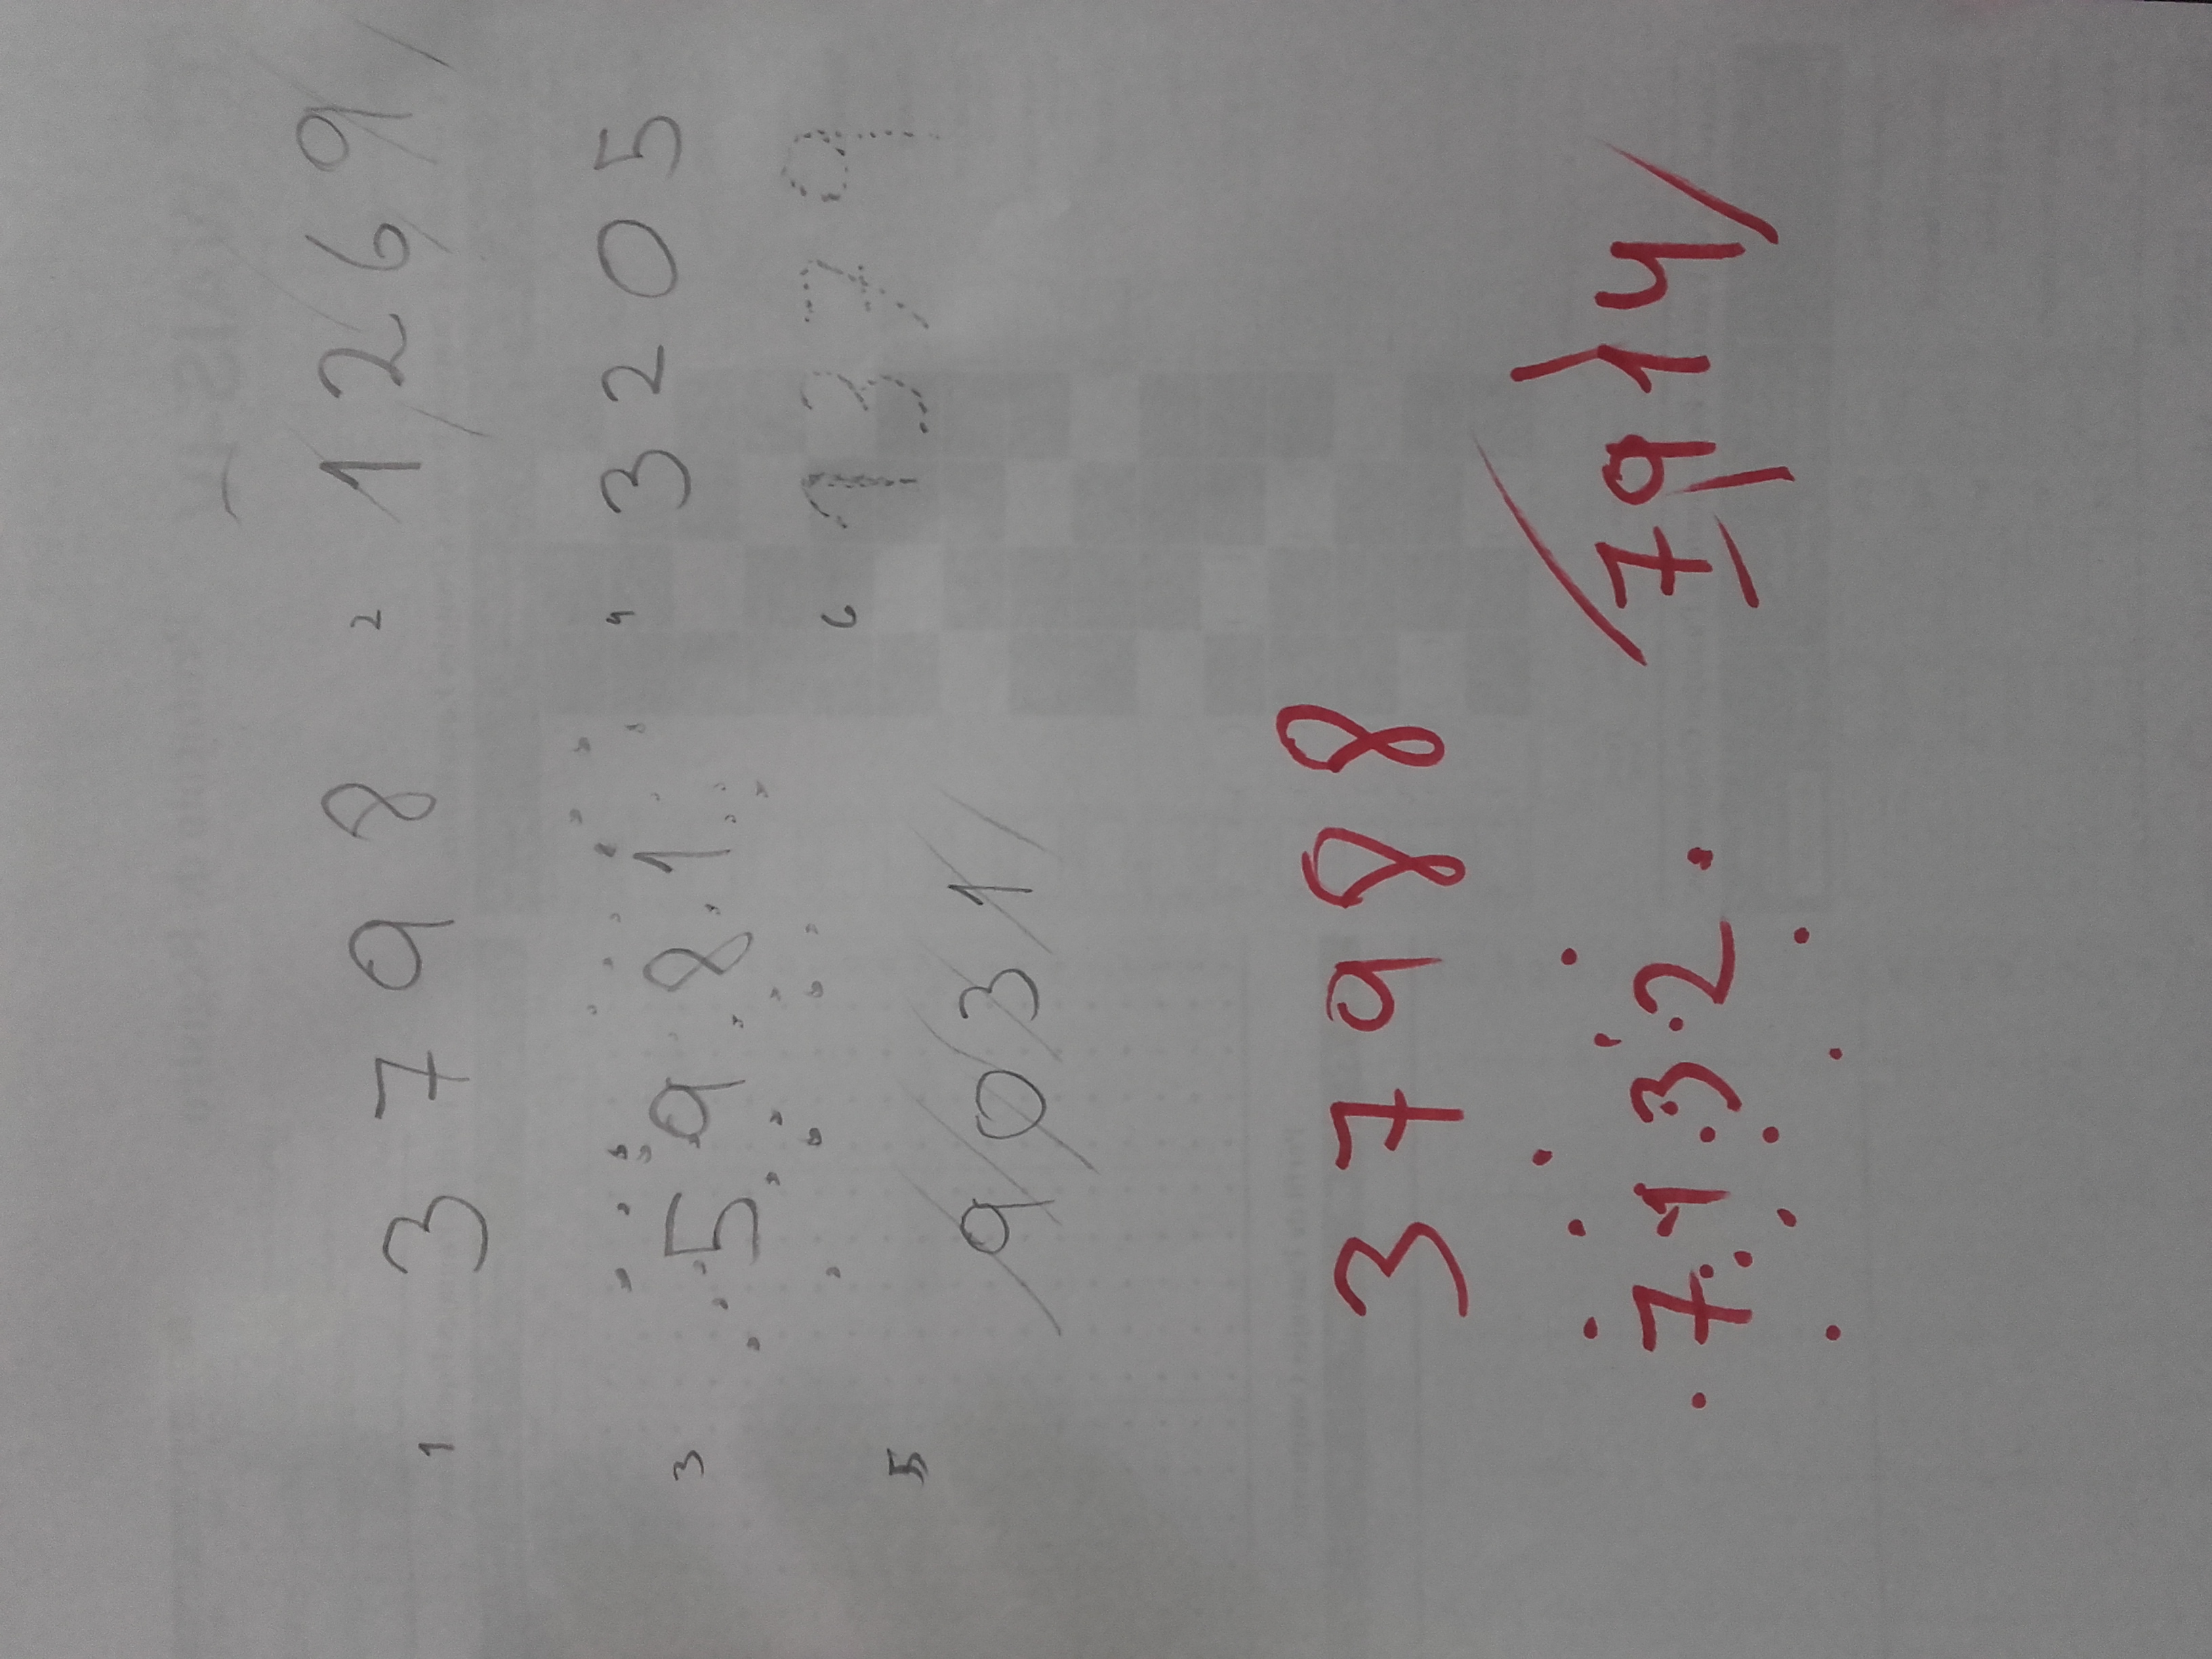 1 3798 2 1269
3 5981 4 3205
5 9031 6 1379
37988
7132 7914